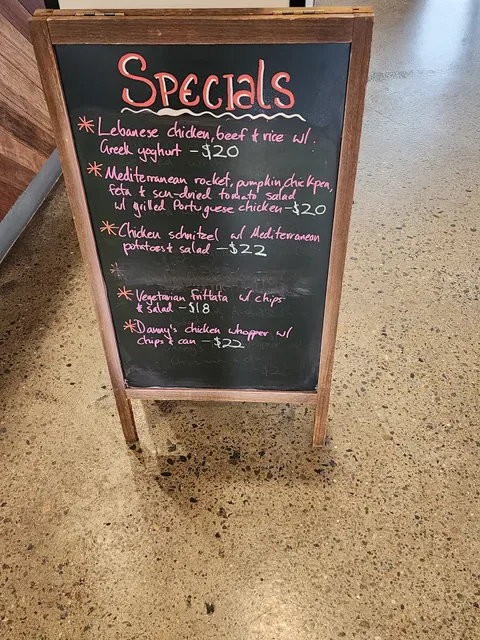 SPECIALS
* Lebanese chicken, beef & rice w/.
Greek yoghurt - $20
* Mediterranean rocket, pumpkin, chickpea,
feta & sun-dried tomato salad
w/ grilled Portuguese chicken - $20
* Chicken schnitzel w/ Mediterranean
potatoes & salad - $22
*
* Vegetarian frittata w/ chips
& salad - $18
* Danny's chicken whopper w/
chips & can - $22